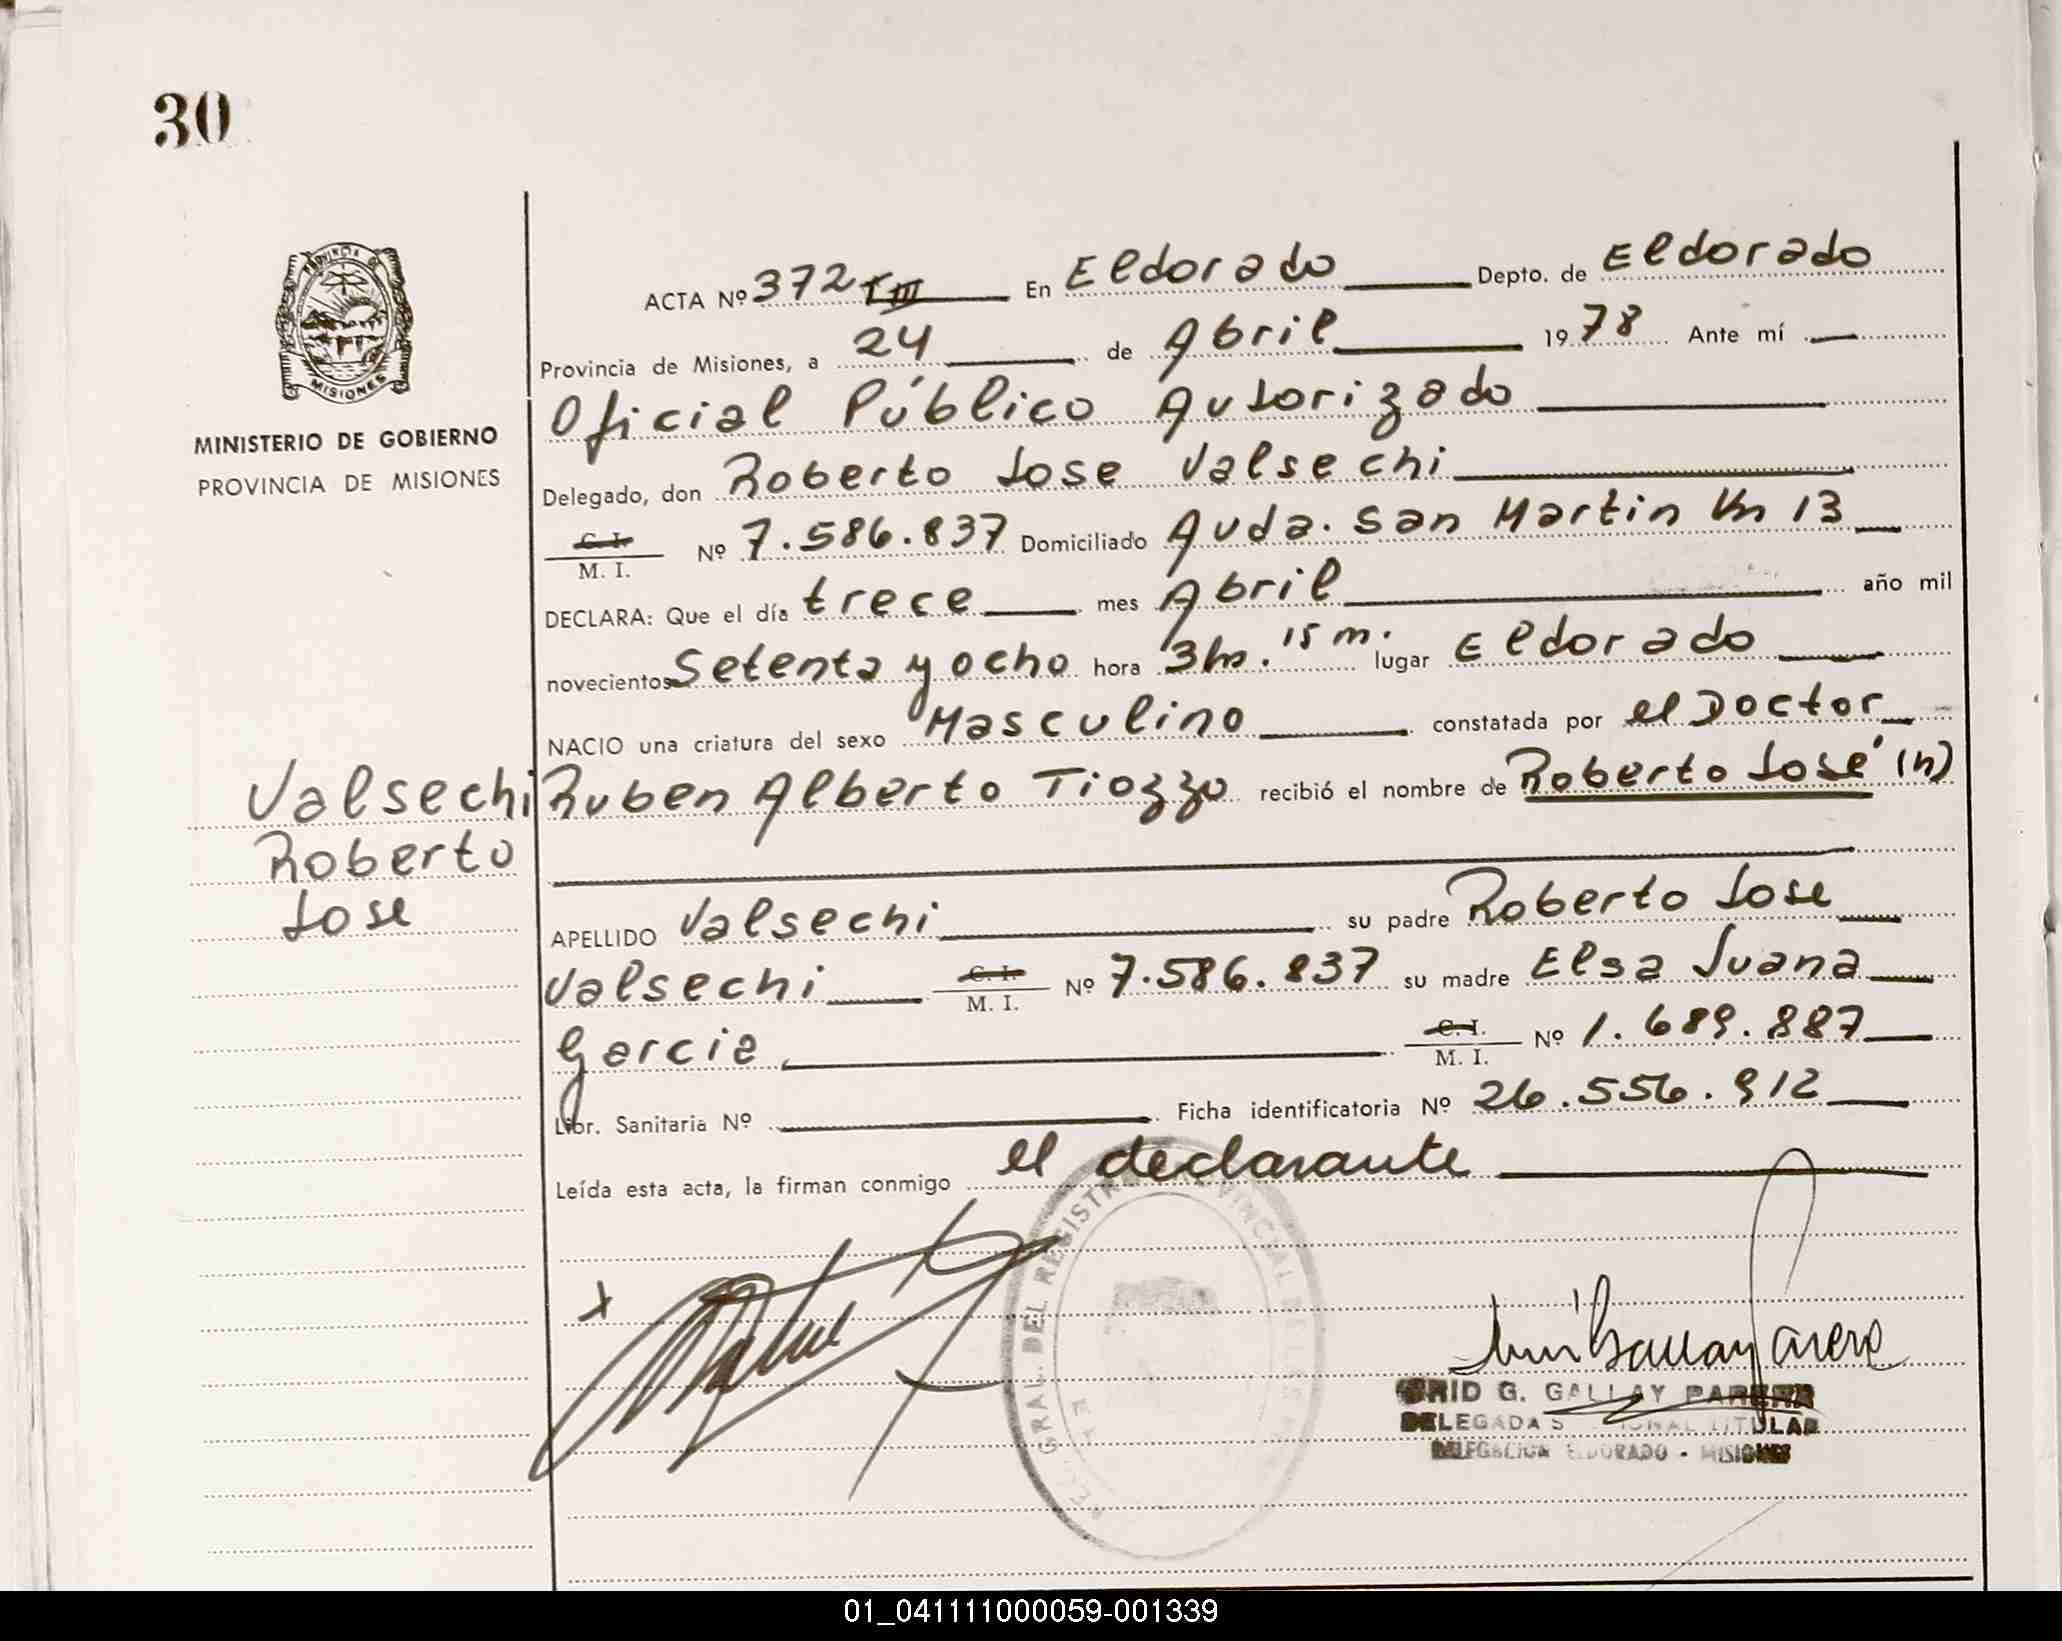 30
PROVINCIA DE
MISIONES
MINISTERIO DE GOBIERNO
PROVINCIA DE MISIONES
Valsechi
Roberto
Jose
ACTA Nº 372 T III En Eldorado Depto. de Eldorado
Provincia de Misiones, a 24 de Abril 1978 Ante mí
Oficial Público Autorizado
Delegado, don Roberto Jose Valsechi
C. I. M. I. Nº 7.586.837 Domiciliado Avda. San Martin Km 13
DECLARA: Que el día trece mes Abril año mil
novecientos Setenta y ocho hora 3 hs. 15 m. lugar Eldorado
NACIO una criatura del sexo Masculino constatada por el Doctor
Ruben Alberto Tiozzo recibió el nombre de Roberto José (h)
APELLIDO Valsechi su padre Roberto Jose
Valsechi C. I. M. I. Nº 7.586.837 su madre Elsa Juana
Garcia C. I. M. I. Nº 1.689.887
Libr. Sanitaria Nº Ficha identificatoria Nº 26.556.912
Leída esta acta, la firman conmigo el declarante
GRAL. DEL REGISTRO PROVINCIAL DE LAS
X
G. GALLAY PARERA
DELEGADA TITULAR
DELEGACION ELDORADO - MISIONES
01_041111000059-001339